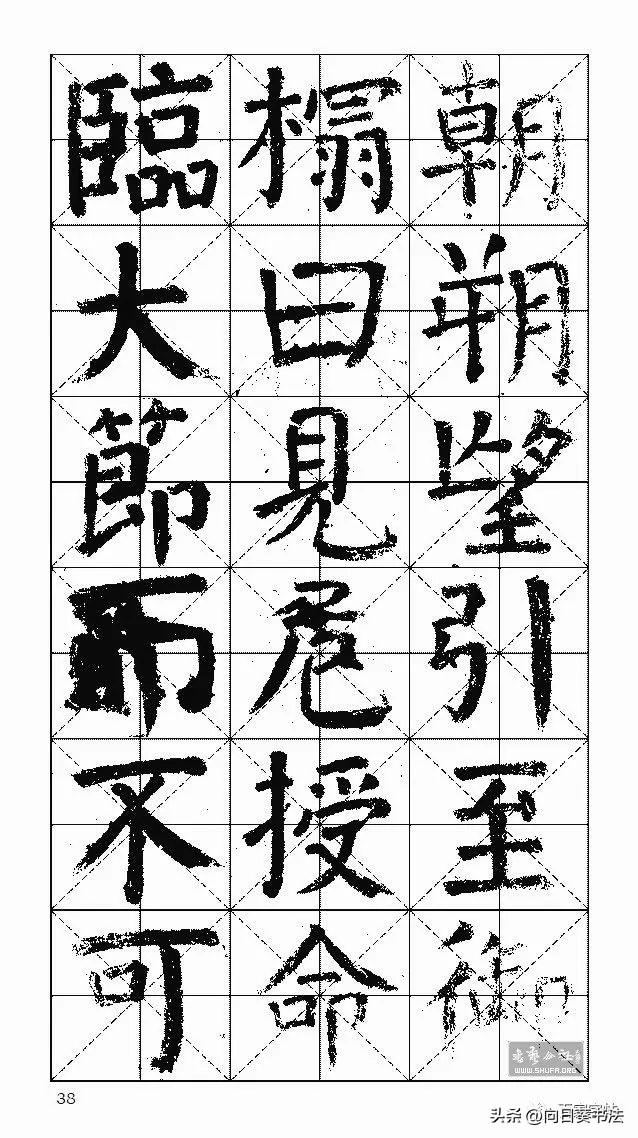 朝朔望引至御
榻曰見危授命
臨大節而不可
WWW.SHUFA.ORG
38
头条 @向日葵书法